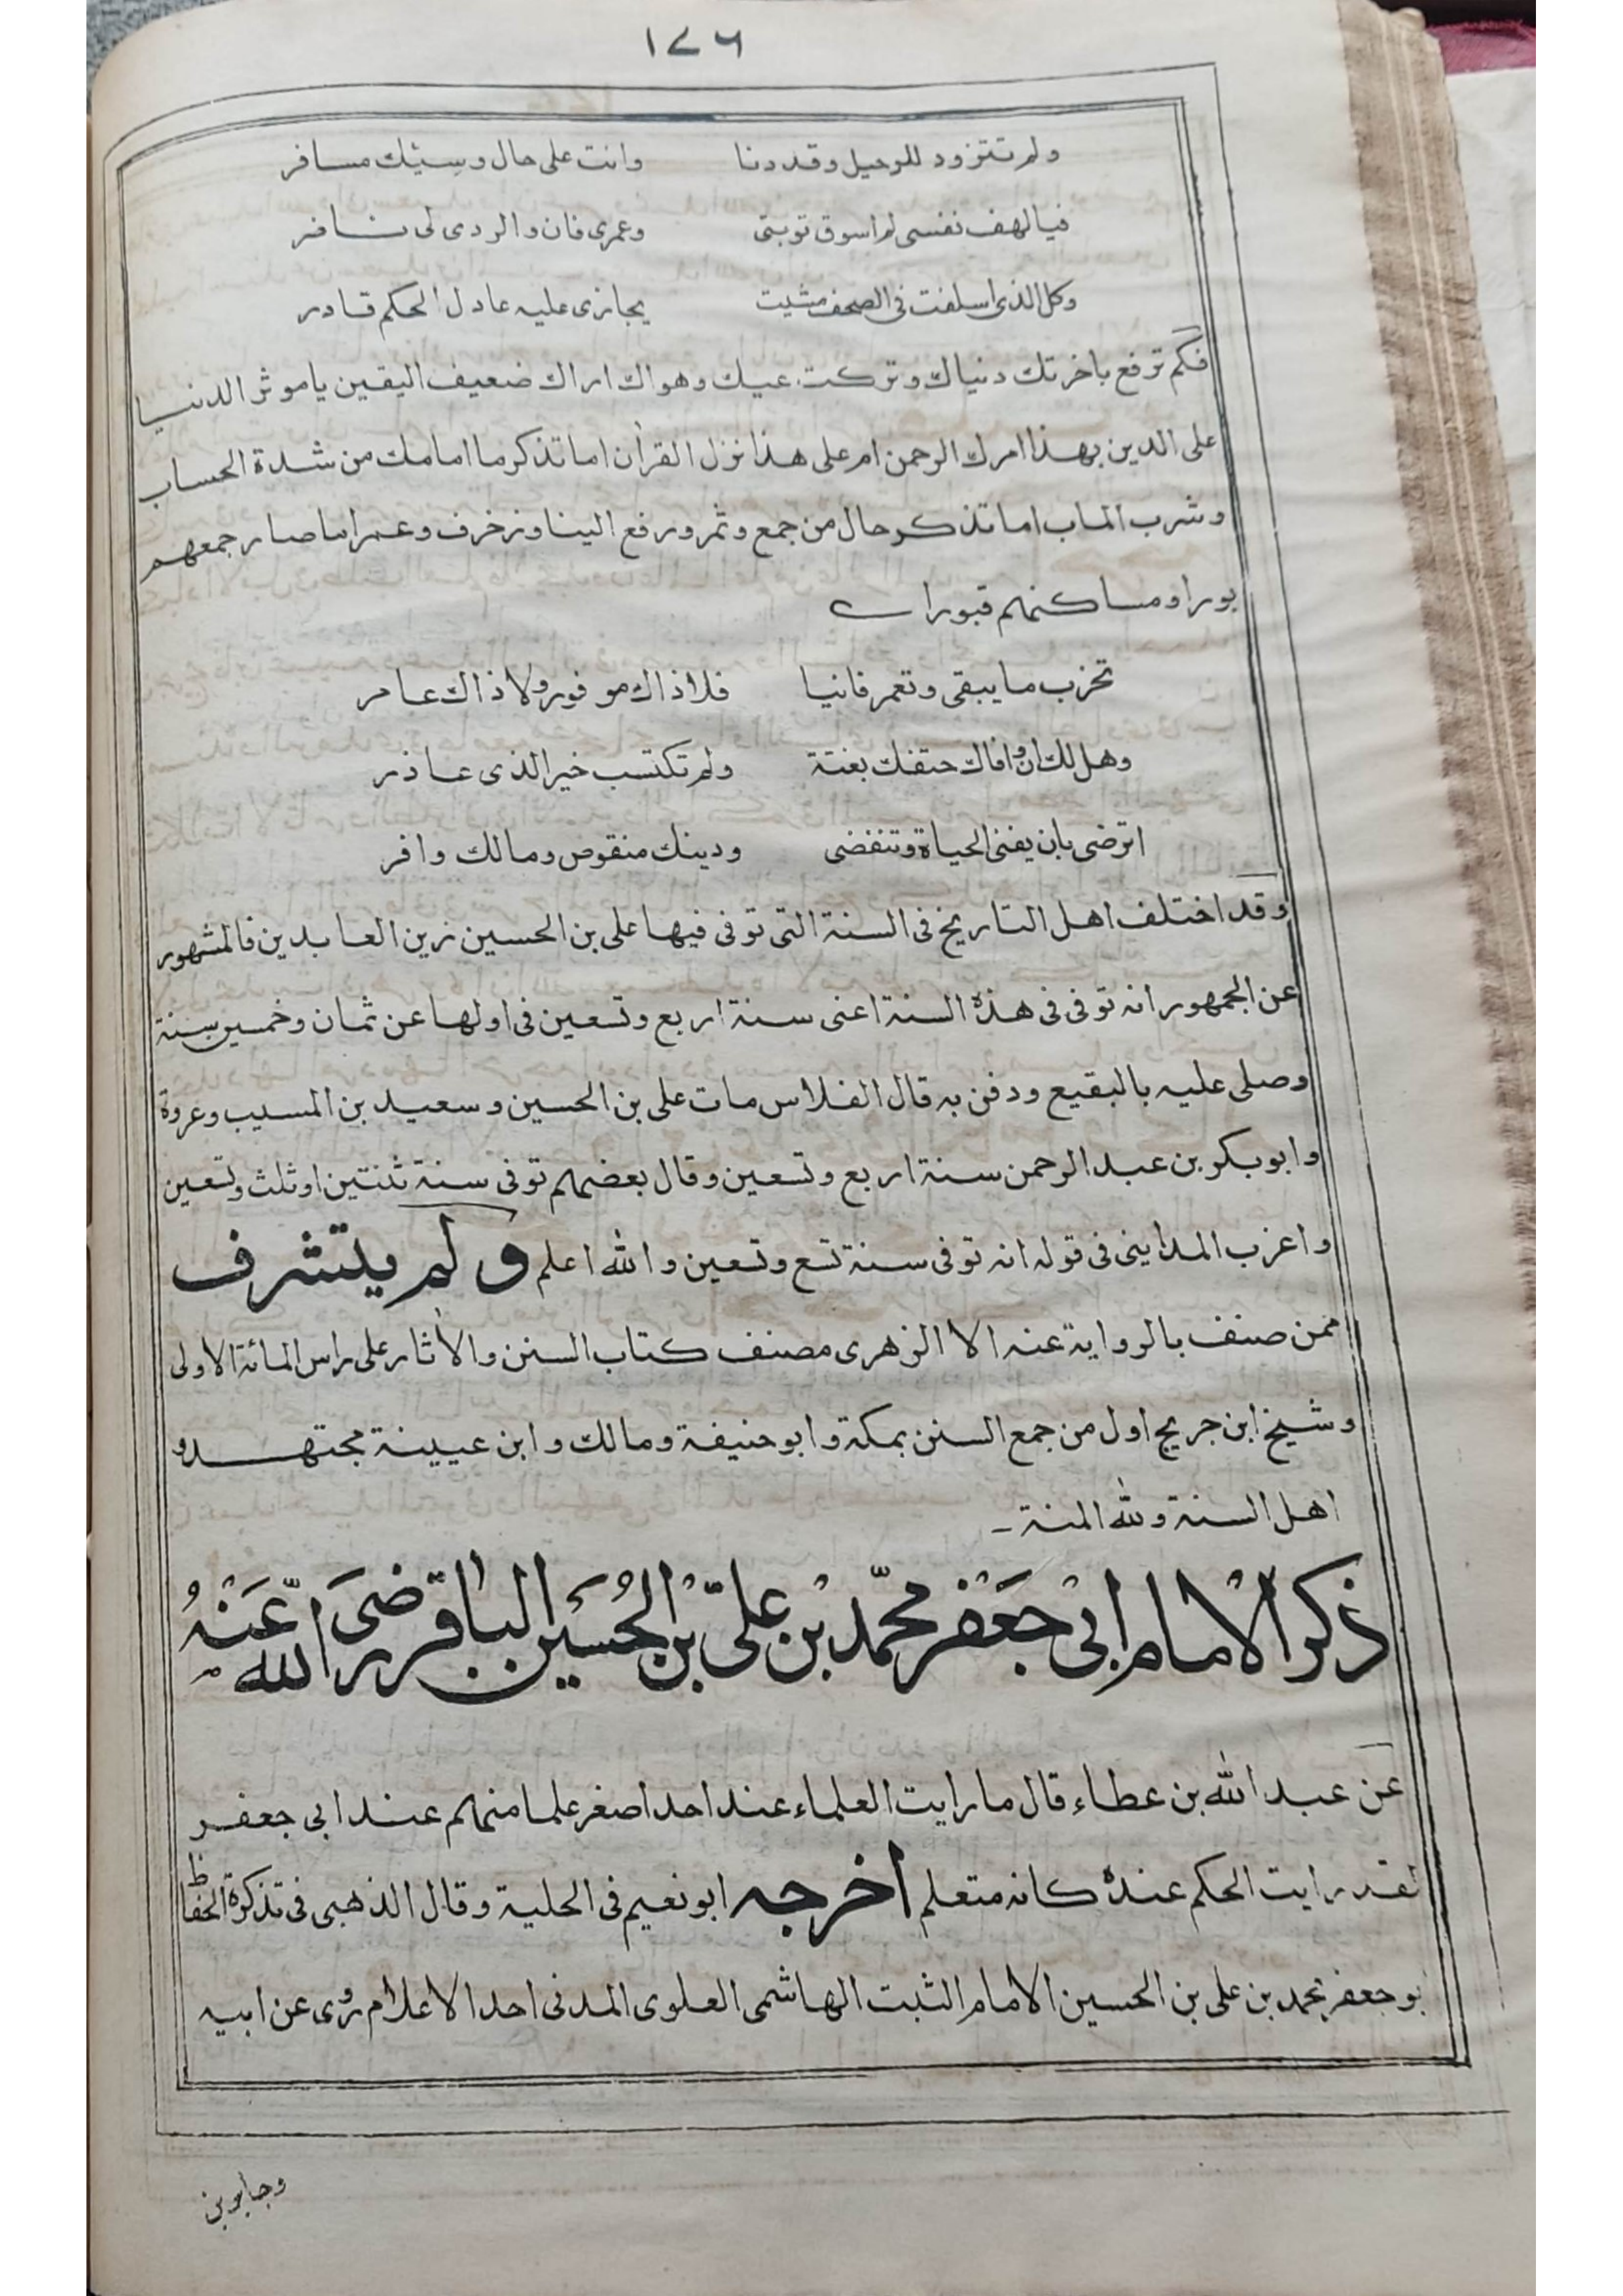 ١٧٦
ولم تتزود للرحيل وقد دنا وانت على حال وسيثك مسافر
فيا لهف نفسى لم اسوق توبتى وعمرى فان والردى لى نافر
وكل الذى اسلفت فى الصحف مثبت يجازى عليه عادل الحكم قادر
فكم ترفع باخرتك دنياك وتركت عيك وهواك اراك ضعيف اليقين يا موثر الدنيا
على الدين بهذا امرك الرحمن ام على هذا نزل القرأن اما تذكر ما امامك من شدة الحساب
وشرب الماب اما تذكر حال من جمع وثمر ورفع البنا وزخرف وعمر اما صار جمعهم
بورا ومساكنهم قبورا
تخرب ما يبقى وتعمر فانيا فلا ذاك موفور ولا ذاك عامر
وهل لك ان وافاك حتفك بغتة ولم تكتسب خير الذى عاذر
اترضى بان يفنى الحياة وتنقضى ودينك منقوص ومالك وافر
وقد اختلف اهل التاريخ فى السنة التى توفى فيها على بن الحسين زين العابدين فالمشهور
عن الجمهور انه توفى فى هذه السنة اعنى سنة اربع وتسعين فى اولها عن ثمان وخمسين سنة
وصلى عليه بالبقيع ودفن به قال الفلاس مات على بن الحسين وسعيد بن المسيب وعروة
وابوبكر بن عبد الرحمن سنة اربع وتسعين وقال بعضهم توفى سنة ثنتين او ثلث وتسعين
واغرب المداينى فى قوله انه توفى سنة تسع وتسعين والله اعلم ولم يتشرف
ممن صنف بالرواية عنه الا الزهرى مصنف كتاب السنن والأثار على راس المائة الاولى
وشيخ ابن جريج اول من جمع السنن بمكة وابو حنيفة ومالك وابن عيينة مجتهدو
اهل السنة ولله المنة -
ذكر الامام ابى جعفر محمّد بن علىّ بن الحُسين الباقر رضىَ اللّه عَنْهُ
عن عبد الله بن عطاء قال ما رايت العلماء عند احد اصغر علما منهم عند ابى جعفر
لقد رايت الحكم عنده كانه متعلم اخرجه ابو نعيم فى الحلية وقال الذهبى فى تذكرة الحفاظ
بو جعفر محمد بن على بن الحسين الامام الثبت الهاشمى العلوى المدنى احد الاعلام روى عن ابيه
وجابر بن